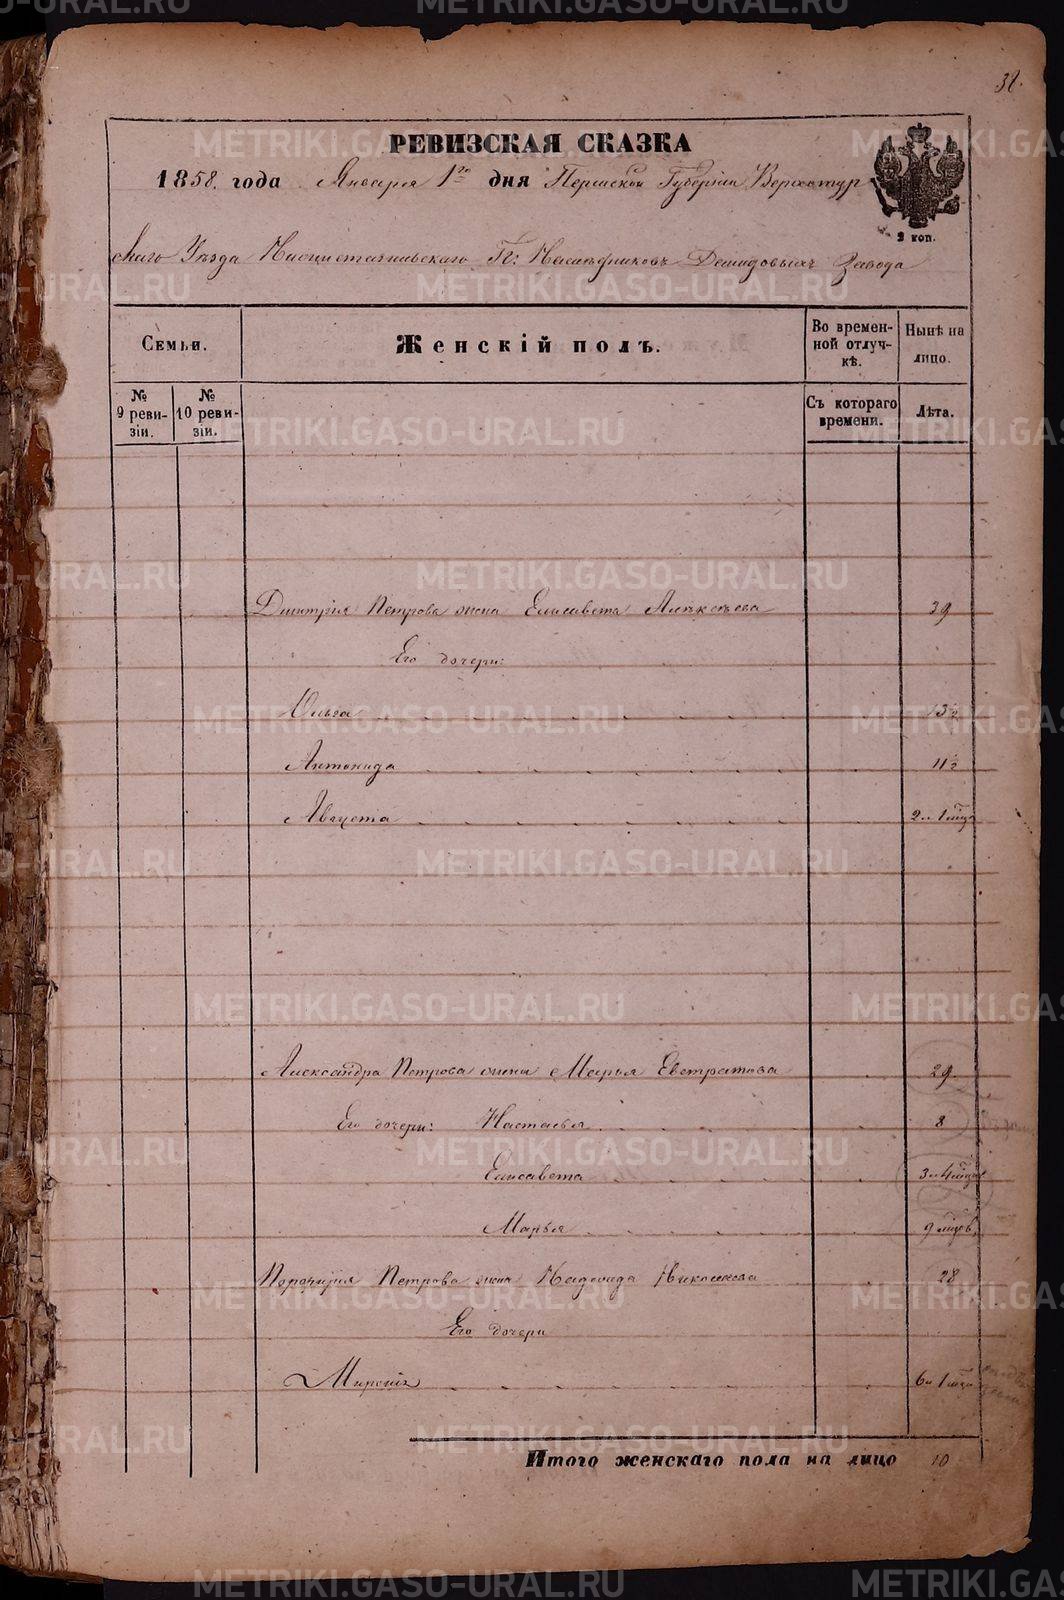 38.
РЕВИЗСКАЯ СКАЗКА
1858. года Января 1го дня Пермской Губерніи Верхотур
скаго Уѣзда Нижнетагильскаго Гг. Наслѣдниковъ Демидовыхъ Завода
2 коп.
Семьи.
Женскій полъ.
Во времен-
ной отлуч-
кѣ.
Нынѣ на
лицо.
№
9 реви-
зіи.
№
10 реви-
зіи.
Съ котораго
времени.
Лѣта.
Дмитрія Петрова жена Елисавета Алексѣева 39
Его дочери:
Ольга 13½
Антонида 11½
Августа 2 и 1 мѣс
Александра Петрова жена Марья Евстратова 29.
Его дочери: Настасья 8
Елисавета 3 и 4 мѣс
Марья 9 мѣсяцов.
Порфирія Петрова жена Надежда Николаева 28
Его дочери
Миропія 6 и 1 мѣс
Итого женскаго пола на лицо 10
METRIKI.GASO-URAL.RU